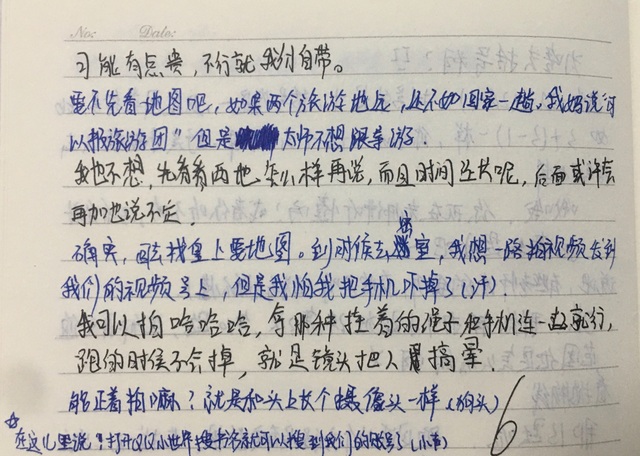 No: Date:
可能有点贵，不行就我们自带。
要不先看地图吧，如果两个旅游地点，还不如回家一趟，我妈说"可
以报旅游团"但是 太师不想跟导游.
我也不想，先看看两地怎么样再说，而且时间还长呢，后面或许会
再加也说不定.
确实，回去找皇上要地图。到时候去密室，我想一路拍视频发到
我们的视频号上，但是我怕我把手机吓掉了(汗).
我可以拍哈哈哈，拿那种挂着的绳子和手机连一起就行，
跑的时候不会掉，就是镜头把人晃搞晕.
能正着拍嘛？就是和头上长个摄像头一样(狗头)
☆在这儿里说：打开QQ小世界搜书名就可以搜到我们的账号了(小声)
6